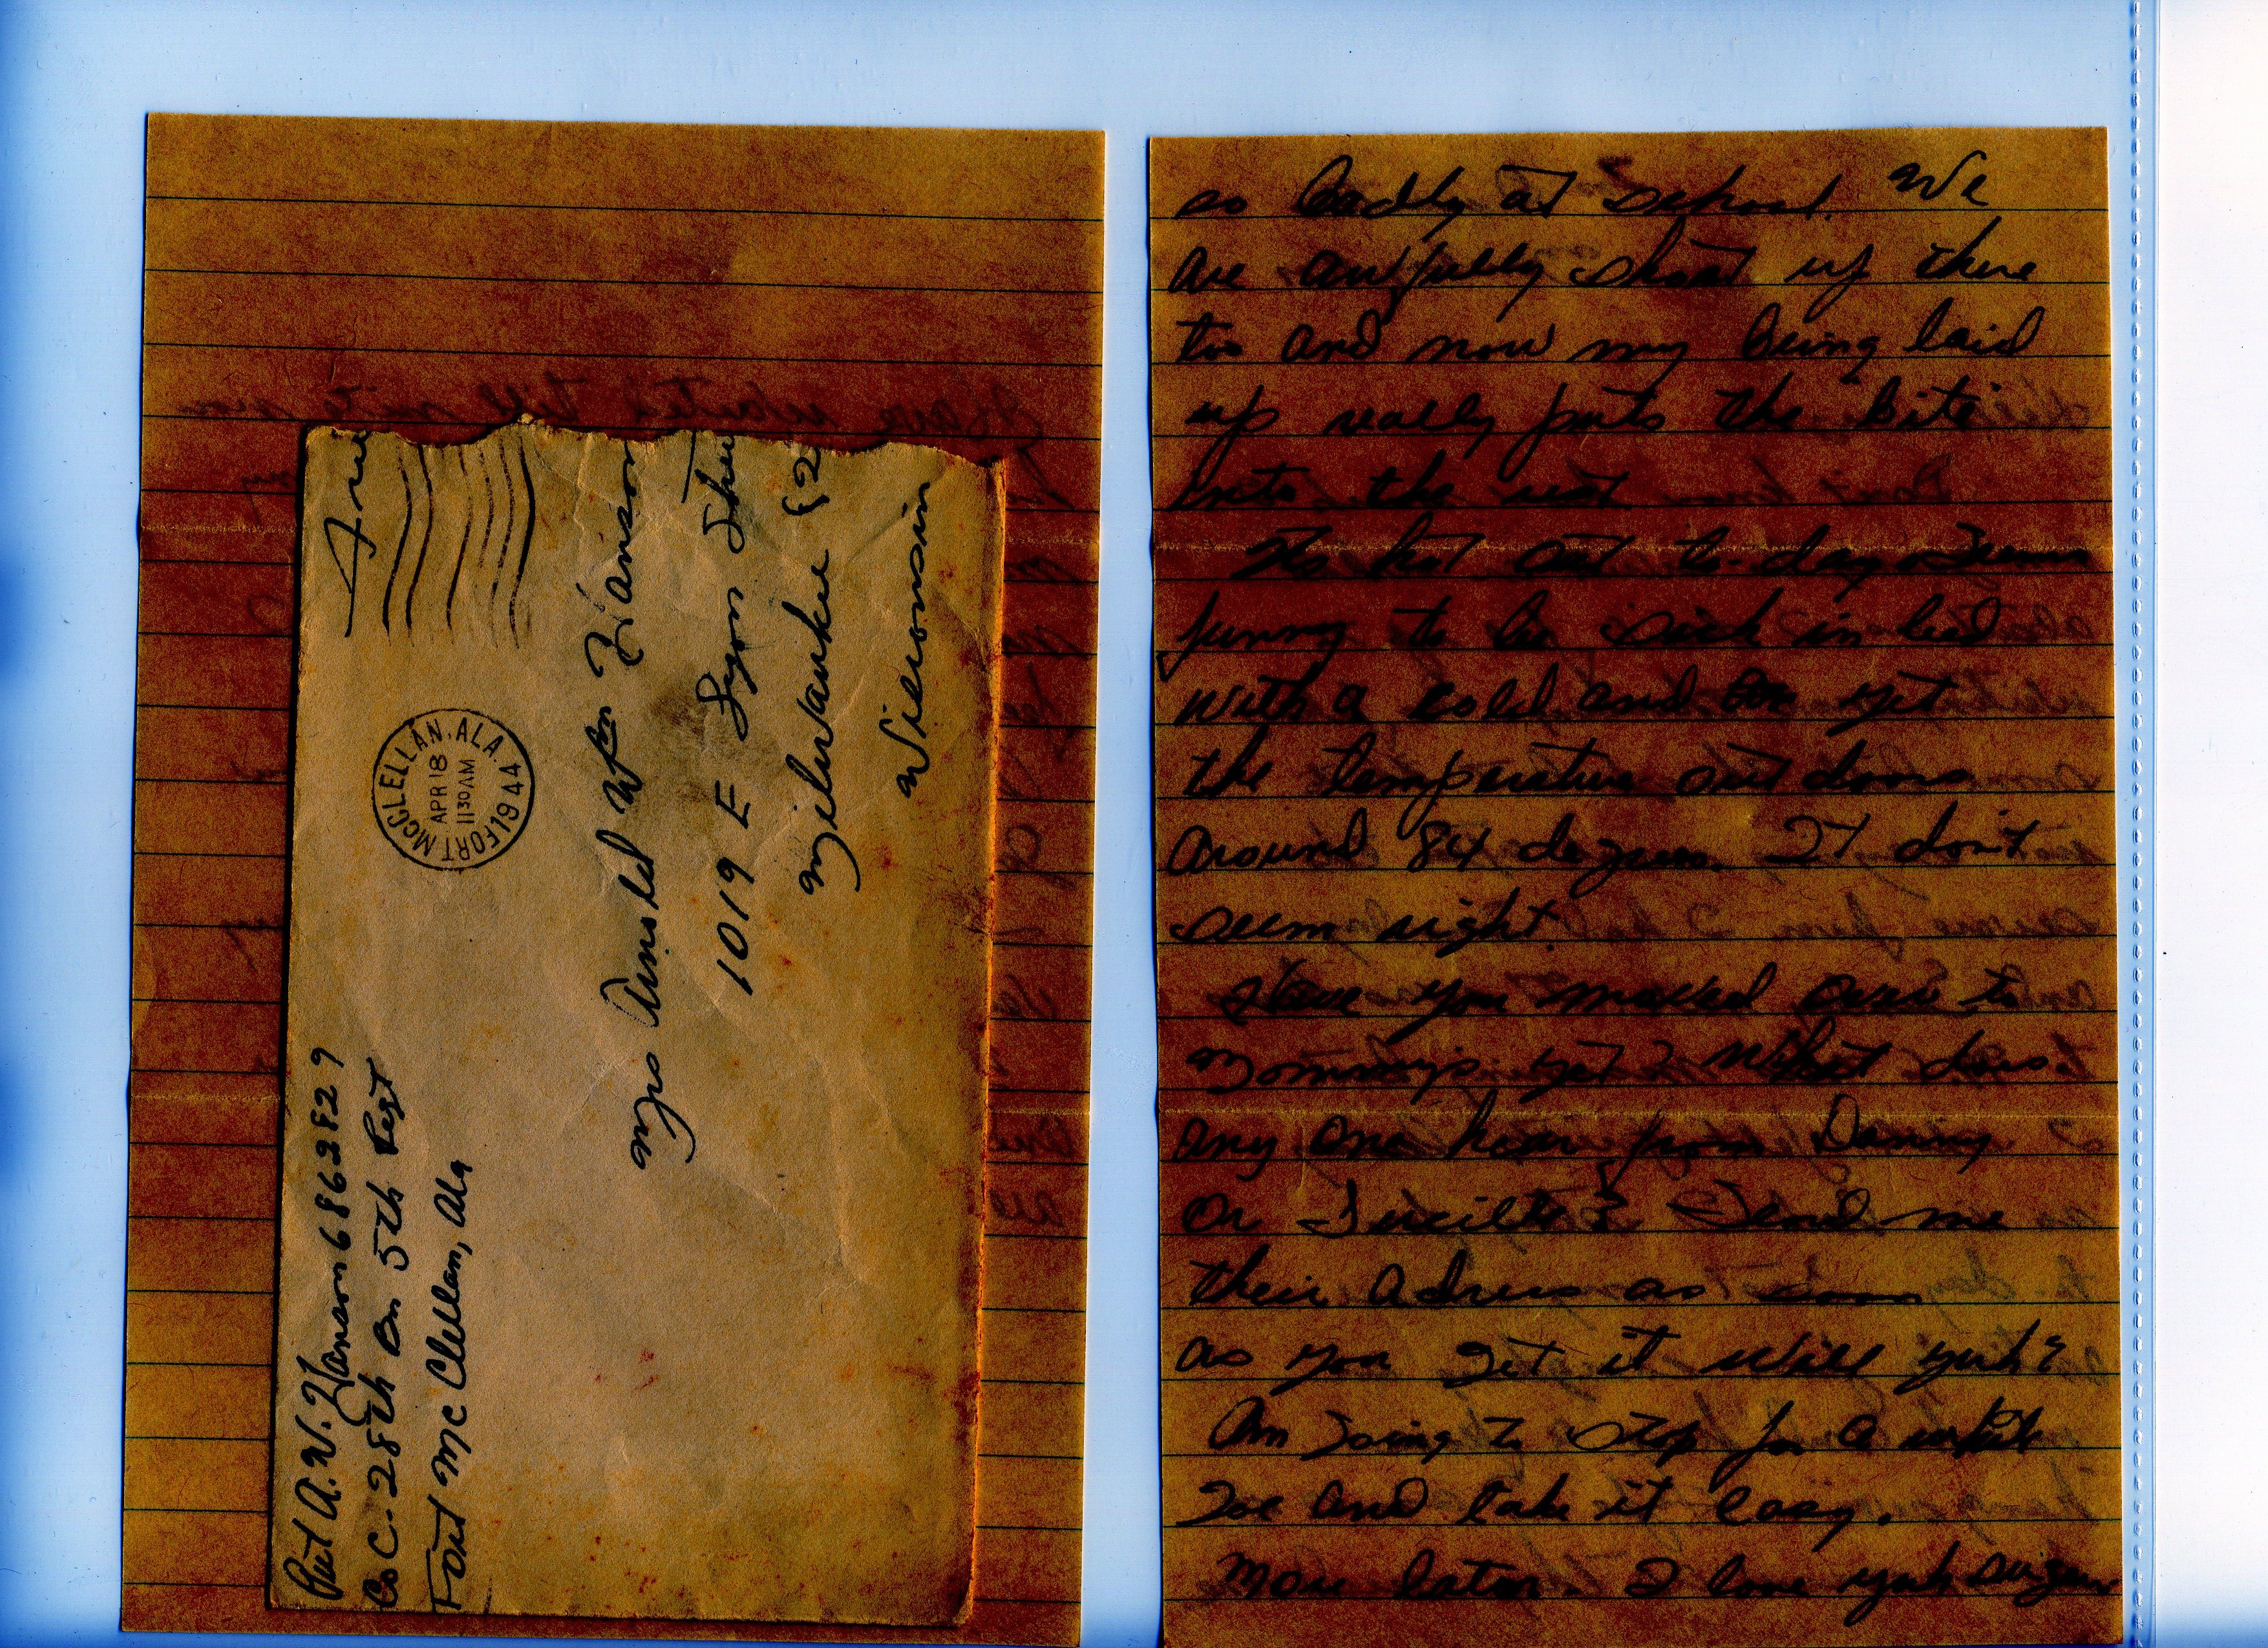 Pvt A. W. Hanson 6862829
Co C - 28th Bn 5th Regt
Fort McClellan, Ala
FORT MCCLELLAN, ALA.
APR 18
1130 AM
1944
Free
Mrs Arnold Wm Hanson
1019 E Lyon
Milwaukee (2
Wisconsin
Have waited till
so badly at school. We
are awfully short up there
too and now my being laid
up really puts the bite
into the rest
Its hot out to-day. Seems
funny to be sick in bed
with a cold and yet
the temperature out doors
around 84 degrees. It don't
seem right.
Have you moved over to
Mommy's yet? What does
any one hear from Danny
or Lucille? Send me
their adress as soon
as you get it will yuh?
Am going to stop for a while
Joe and take it easy.
More later. I love yuh sugar